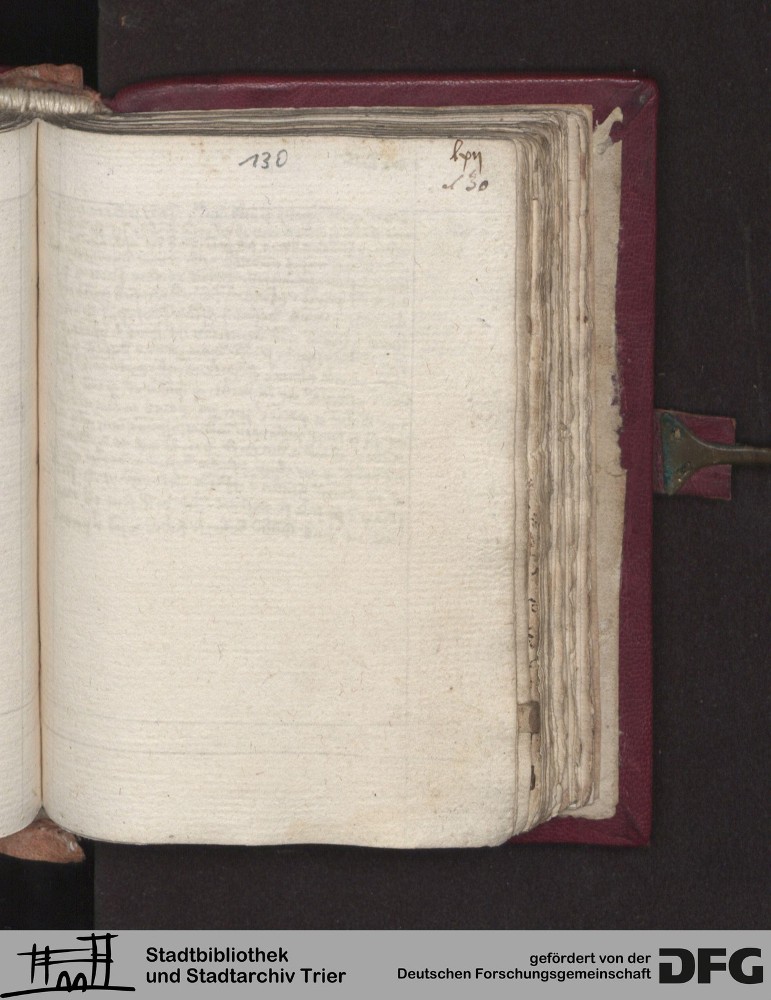 130
lxij
130
Stadtbibliothek
und Stadtarchiv Trier
gefördert von der
Deutschen Forschungsgemeinschaft
DFG